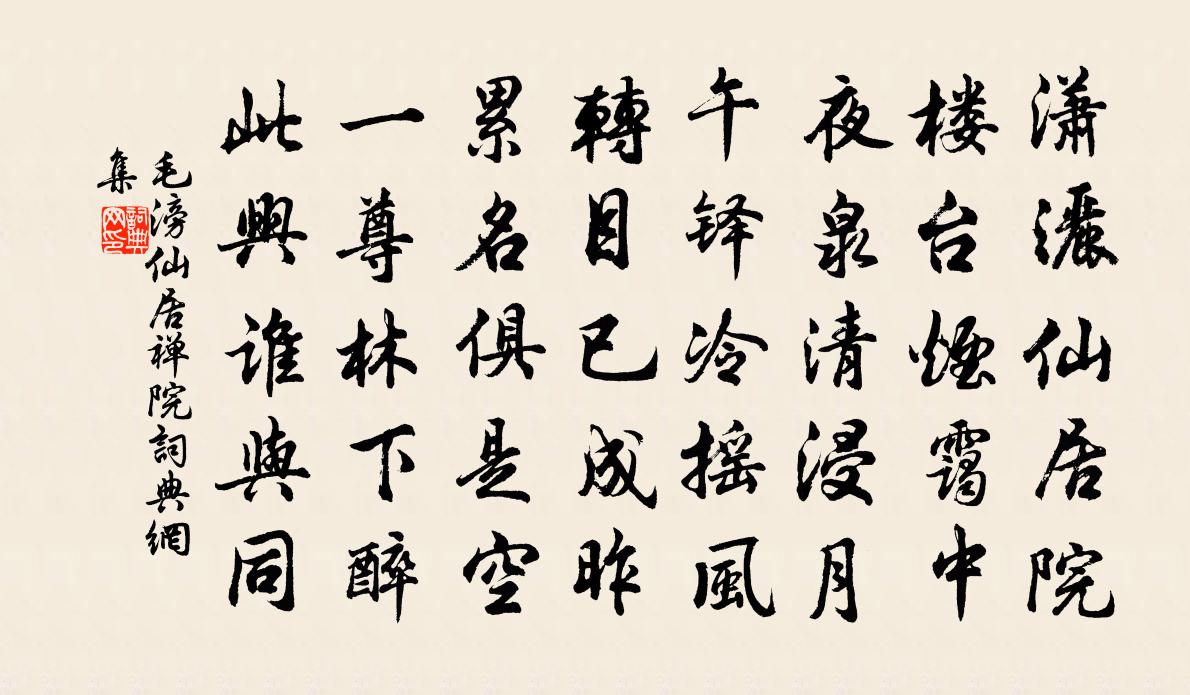 潇灑仙居院
楼台煙靄中
夜泉清浸月
午铎冷摇風
轉目已成昨
累名俱是空
一尊林下醉
此興谁與同
毛滂仙居禅院詞典網
集
詞典
网印